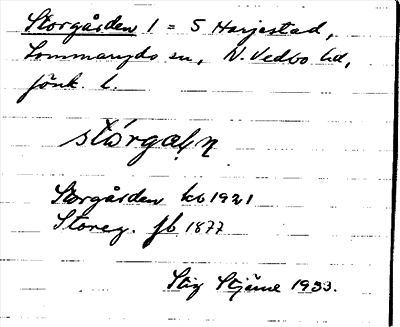 Storgården 1 = 5 Harjestad,
Lommaryds sn, N. Vedbo hd,
Jönk. l.
Storgården kb 1921
Storeg. fb 1877
Stig Stjärne 1933.